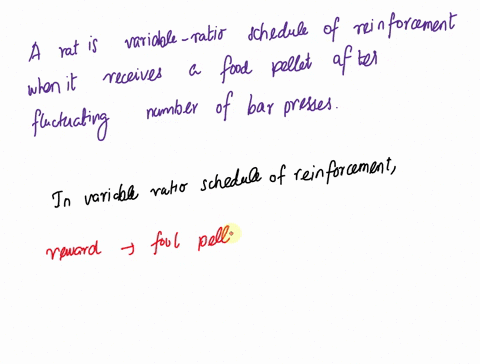 A rat is variable-ratio schedule of reinforcement
when it receives a food pellet after
fluctuating number of bar presses.
In variable ratio schedule of reinforcement,
reward → food pell